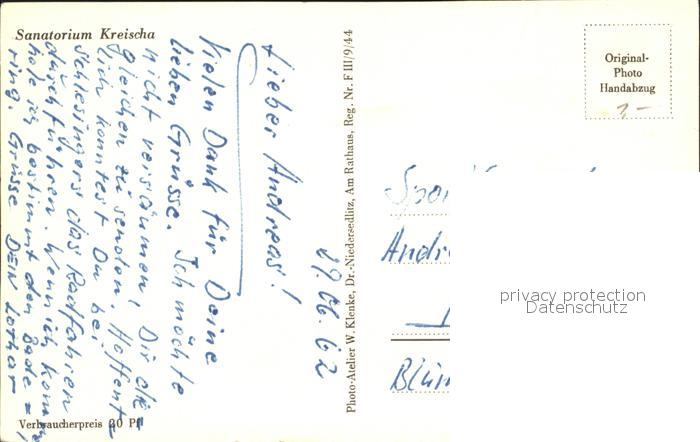 Sanatorium Kreischa
29.06.62
Lieber Andreas!
Vielen Dank für Deine
lieben Grüsse. Ich möchte
nicht versäumen, Dir die-
gleichen zu senden. Hoffent-
lich konntest Du bei
Schlesingers das Radfahren
durchführen. Wenn ich komme
hole ich bestimmt den Bade-
ring. Grüsse DEIN Lothar
Verbraucherpreis 20 Pf
Photo-Atelier W. Klenke, Dr.-Niedersedlitz, Am Rathaus, Reg. Nr. F III/9/44
Original-
Photo
Handabzug
Andr
Blüm
privacy protection
Datenschutz